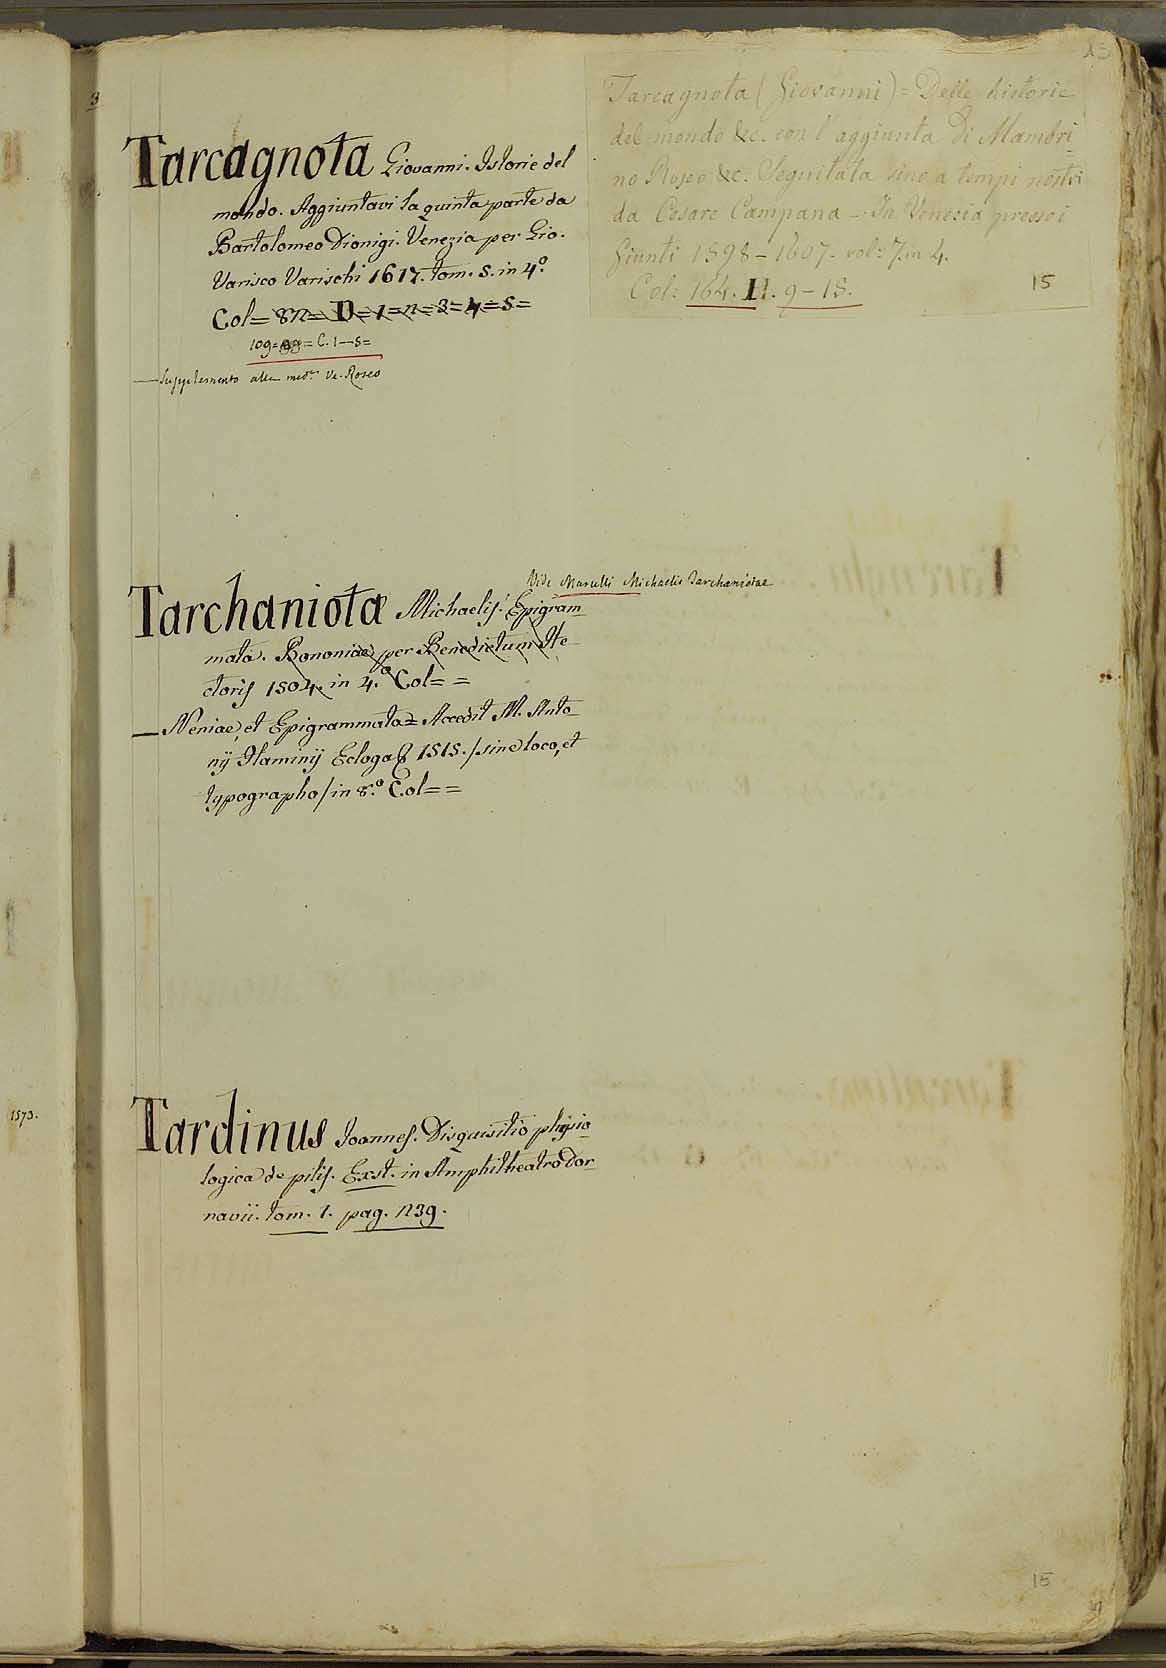 3
Tarcagnota Giovanni. Istorie del
mondo. Aggiuntavi la quinta parte da
Bartolomeo Dionigi. Venezia per Gio.
Varisco Varischi 1617. tom. 5. in 4.º
Col= 82= D=1=2=3=4=5=
109= = C. 1—5=
—Supplemento alla med.ª V. Roseo
13
Tarcagnota (Giovanni)= Delle historie
del mondo &c. con l'aggiunta di Mambri-
no Roseo &c. Seguitata sino a tempi nostri
da Cesare Campana - In Venezia presso i
Giunti 1598-1607- vol: 7. in 4.
Col: 164. H. 9-15.
15
Vide Marulli Michaelis Tarchaniotae
Tarchaniotæ Michaelis. Epigram-
mata. Bononiae per Benedictum He-
ctoris 1504. in 4.º Col= =
— Neniae, et Epigrammata= Accedit M. Anto-
nij Flaminij Eclogae 1515. / sine loco, et
typographo / in 8.º Col= =
1573.
Tardinus Joannes. Disquisitio physio-
logica de pilis. Exst. in Amphitheatro Dor-
navii. tom. 1. pag. 239.
15